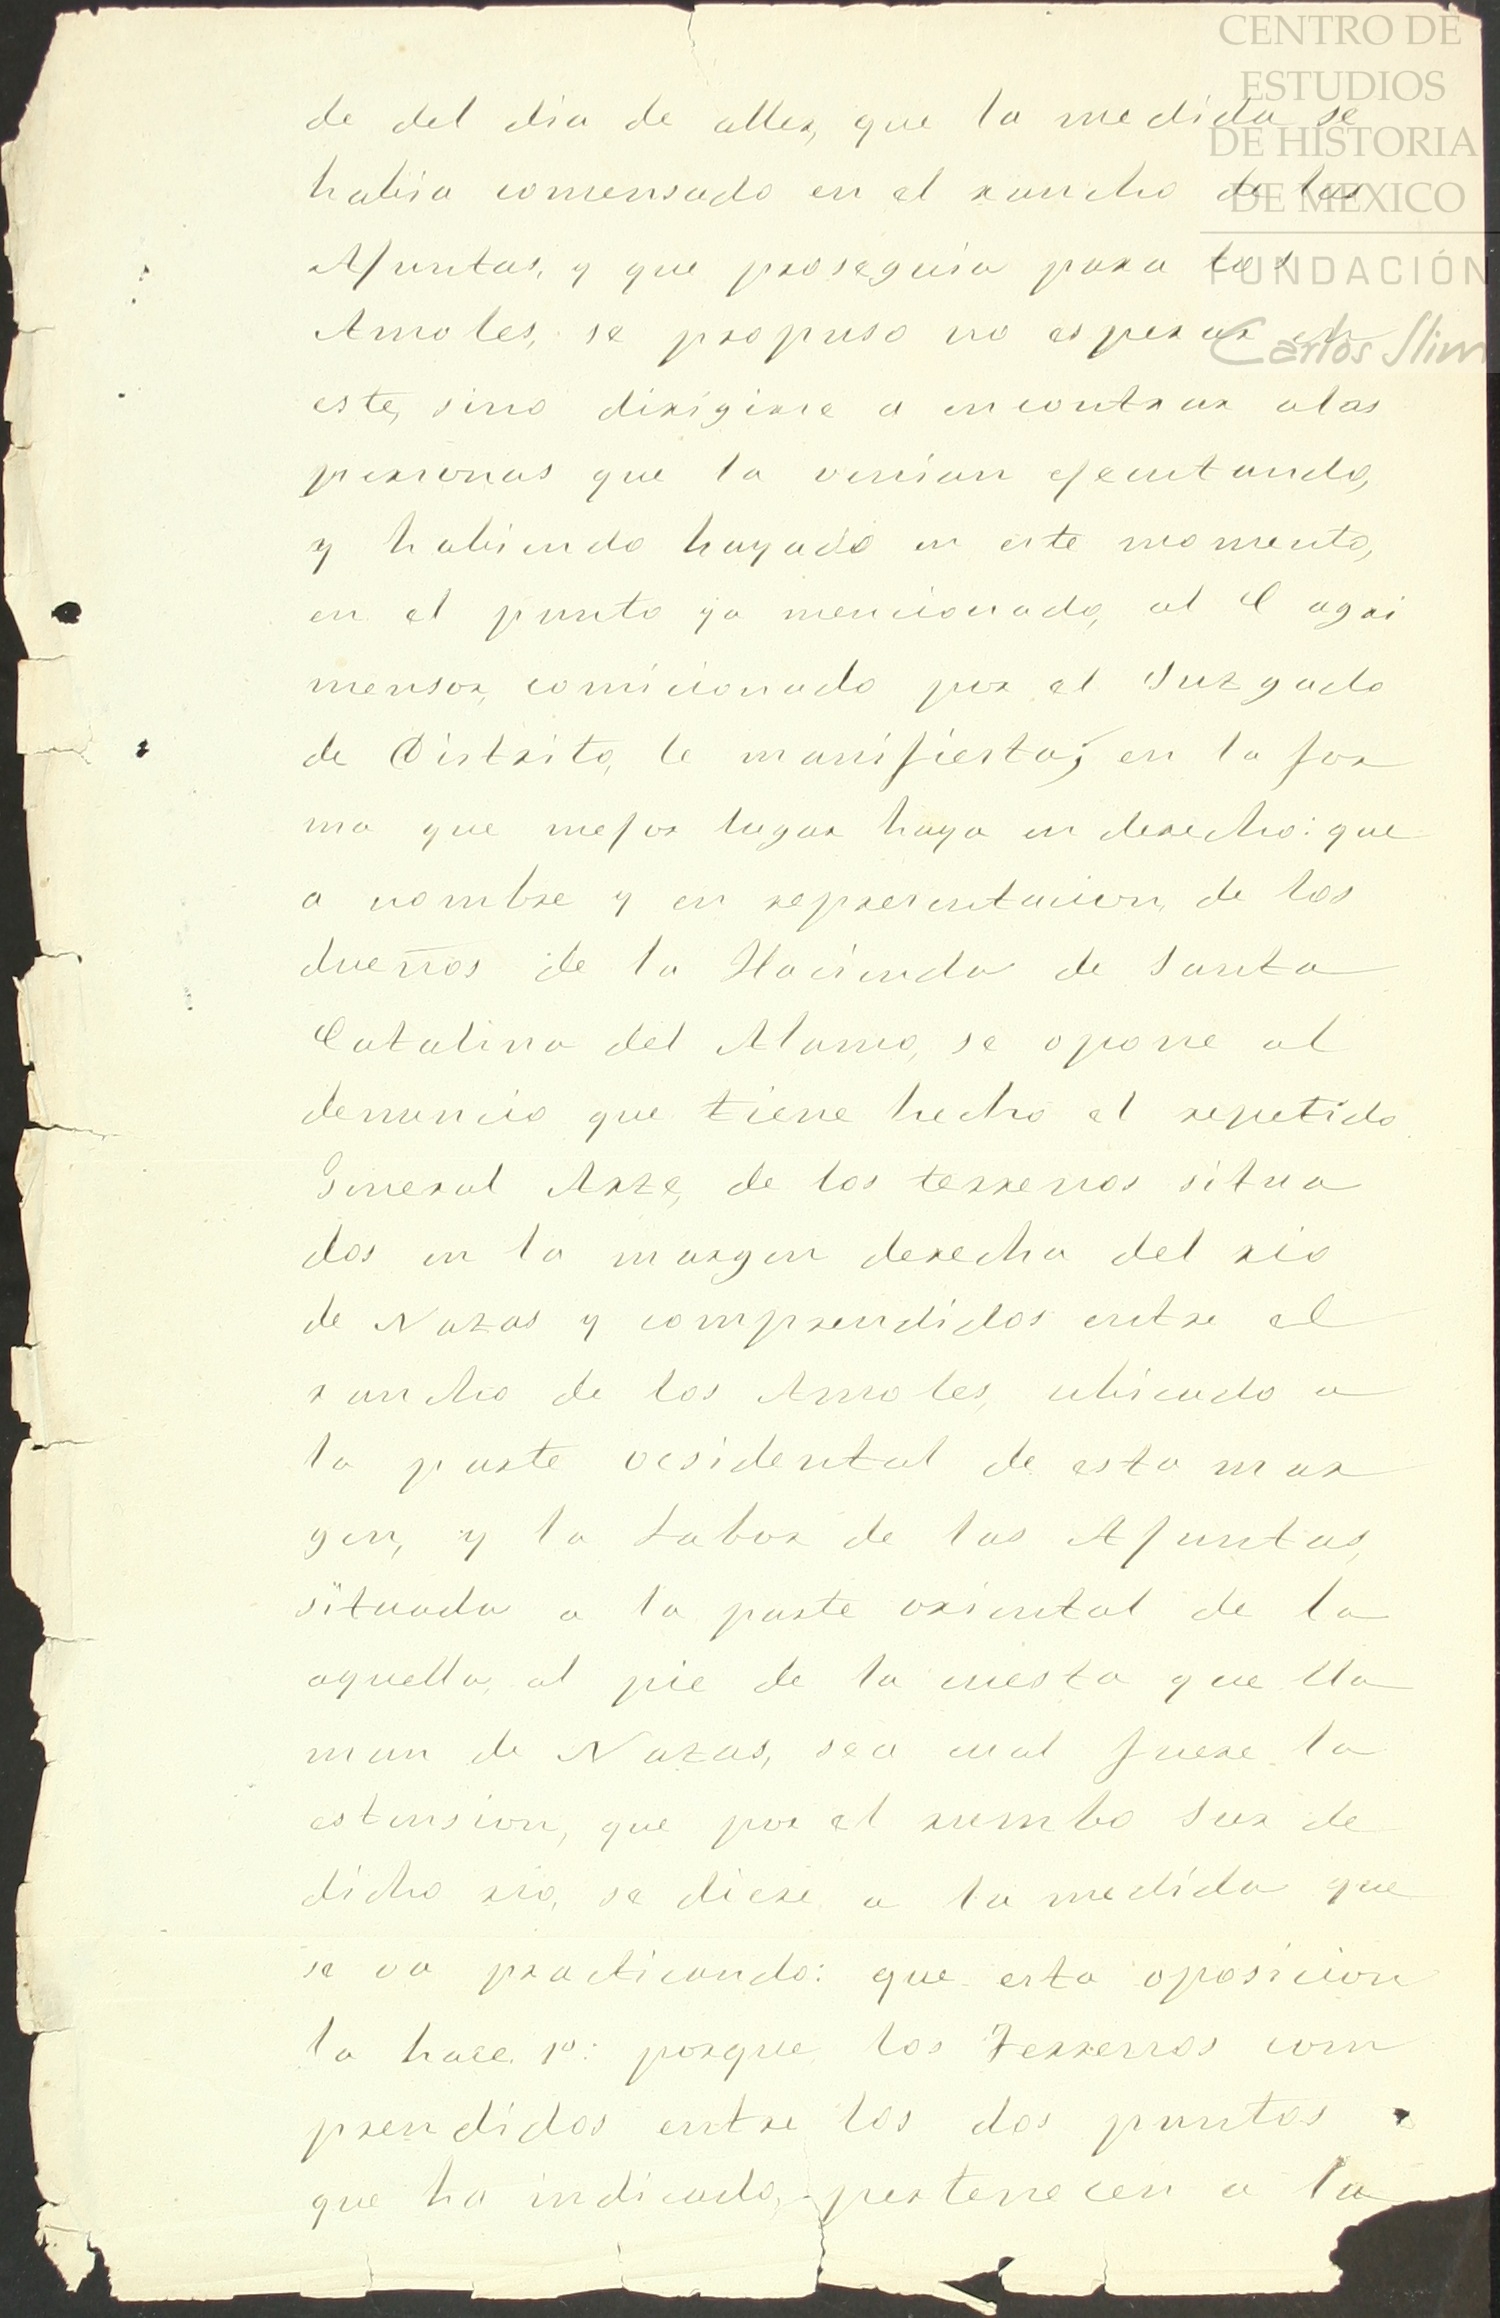 CENTRO DE
ESTUDIOS
DE HISTORIA
DE MEXICO
FUNDACIÓN
Carlos Slim
de del dia de aller, que la medida se
habia comensado en el rancho de las
Ajuntas, y que proseguia para los
Amoles, se propuso no esperar en
este, sino dirigirse a encontrar alas
personas que la venian ejecutando,
y habiendo hayado en este momento,
en el punto ya mencionado, al C agri
mensor, comicionado por el Juzgado
de Distrito, le manifiesta; en la for
ma que mejor lugar haya en derecho: que
a nombre y en representacion de los
dueños de la Hacienda de Santa
Catalina del Alamo, se opone al
denuncio que tiene hecho el repetido
General Arze, de los terrenos situa
dos en la margen derecha del rio
de Nazas y comprendidos entre el
rancho de los Amoles, ubicado a
la parte ocsidental de esta mar
gen, y la Labor de las Ajuntas,
situada a la parte oriental de la
aquella, al pie de la cuesta que lla
man de Nazas, sea cual fuere la
estension, que por el rumbo Sur de
dicho rio, se diere a la medida que
se va practicando: que esta oposicion
la hace 1º: porque los Terrenos com
prendidos entre los dos puntos
que ha indicado, pertenecen a la